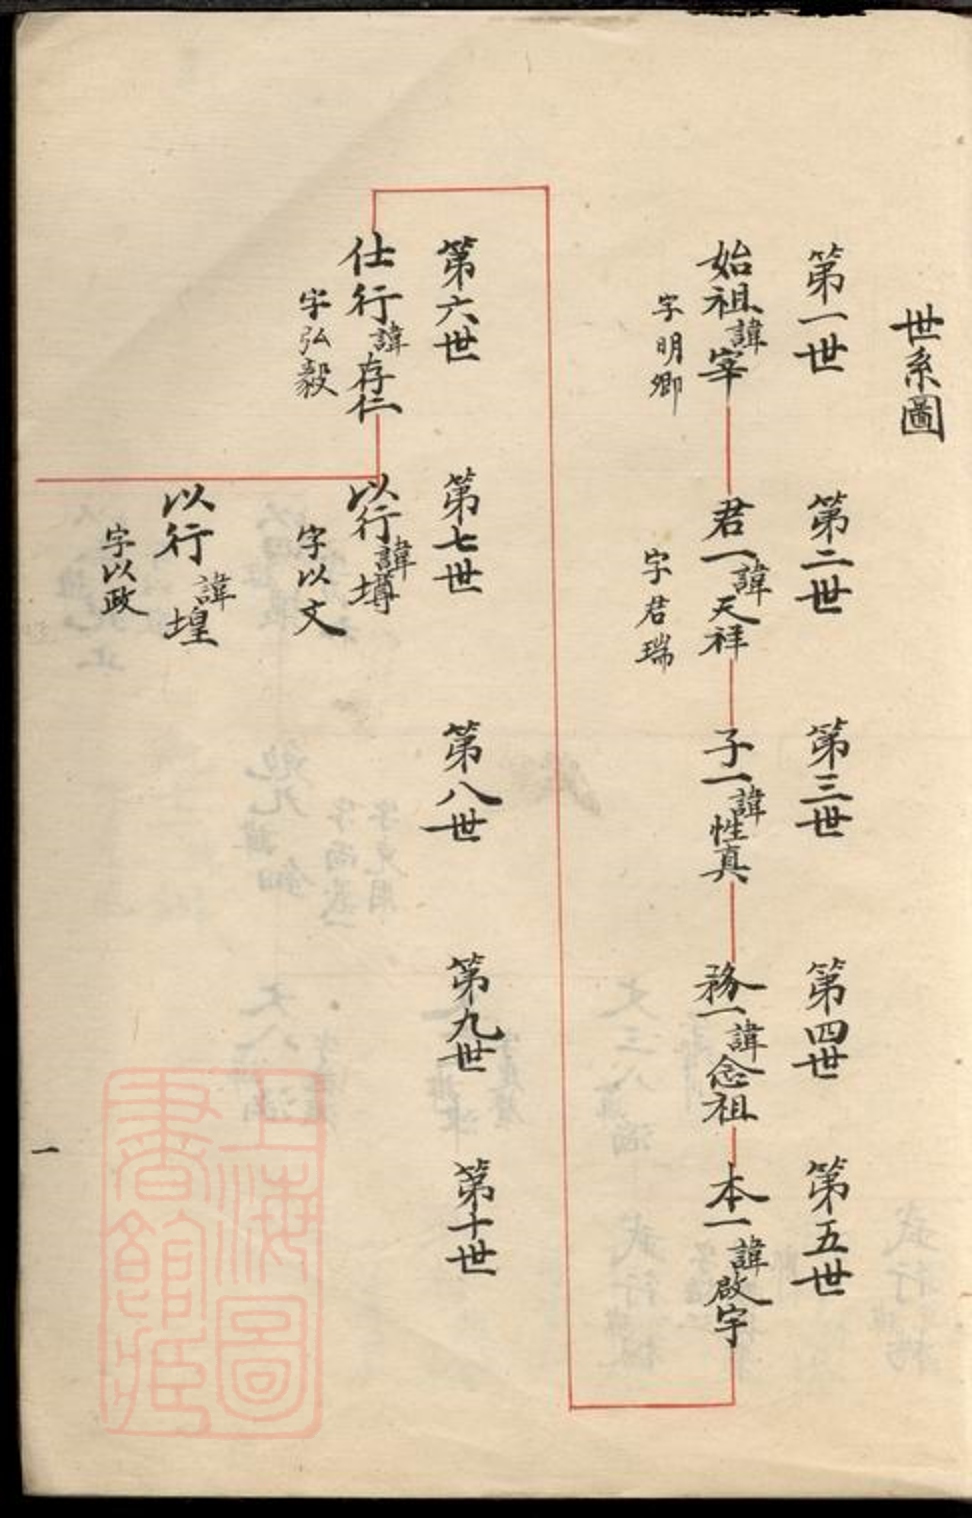 世系圖
第一世
第二世
第三世
第四世
第五世
始祖諱宰
字明卿
君一諱天祥
字君瑞
子一諱性真
務一諱念祖
本一諱啟宇
第六世
第七世
第八世
第九世
第十世
仕行諱存仁
字弘毅
以行諱墫
字以文
以行諱堭
字以政
一
上海圖
書館藏